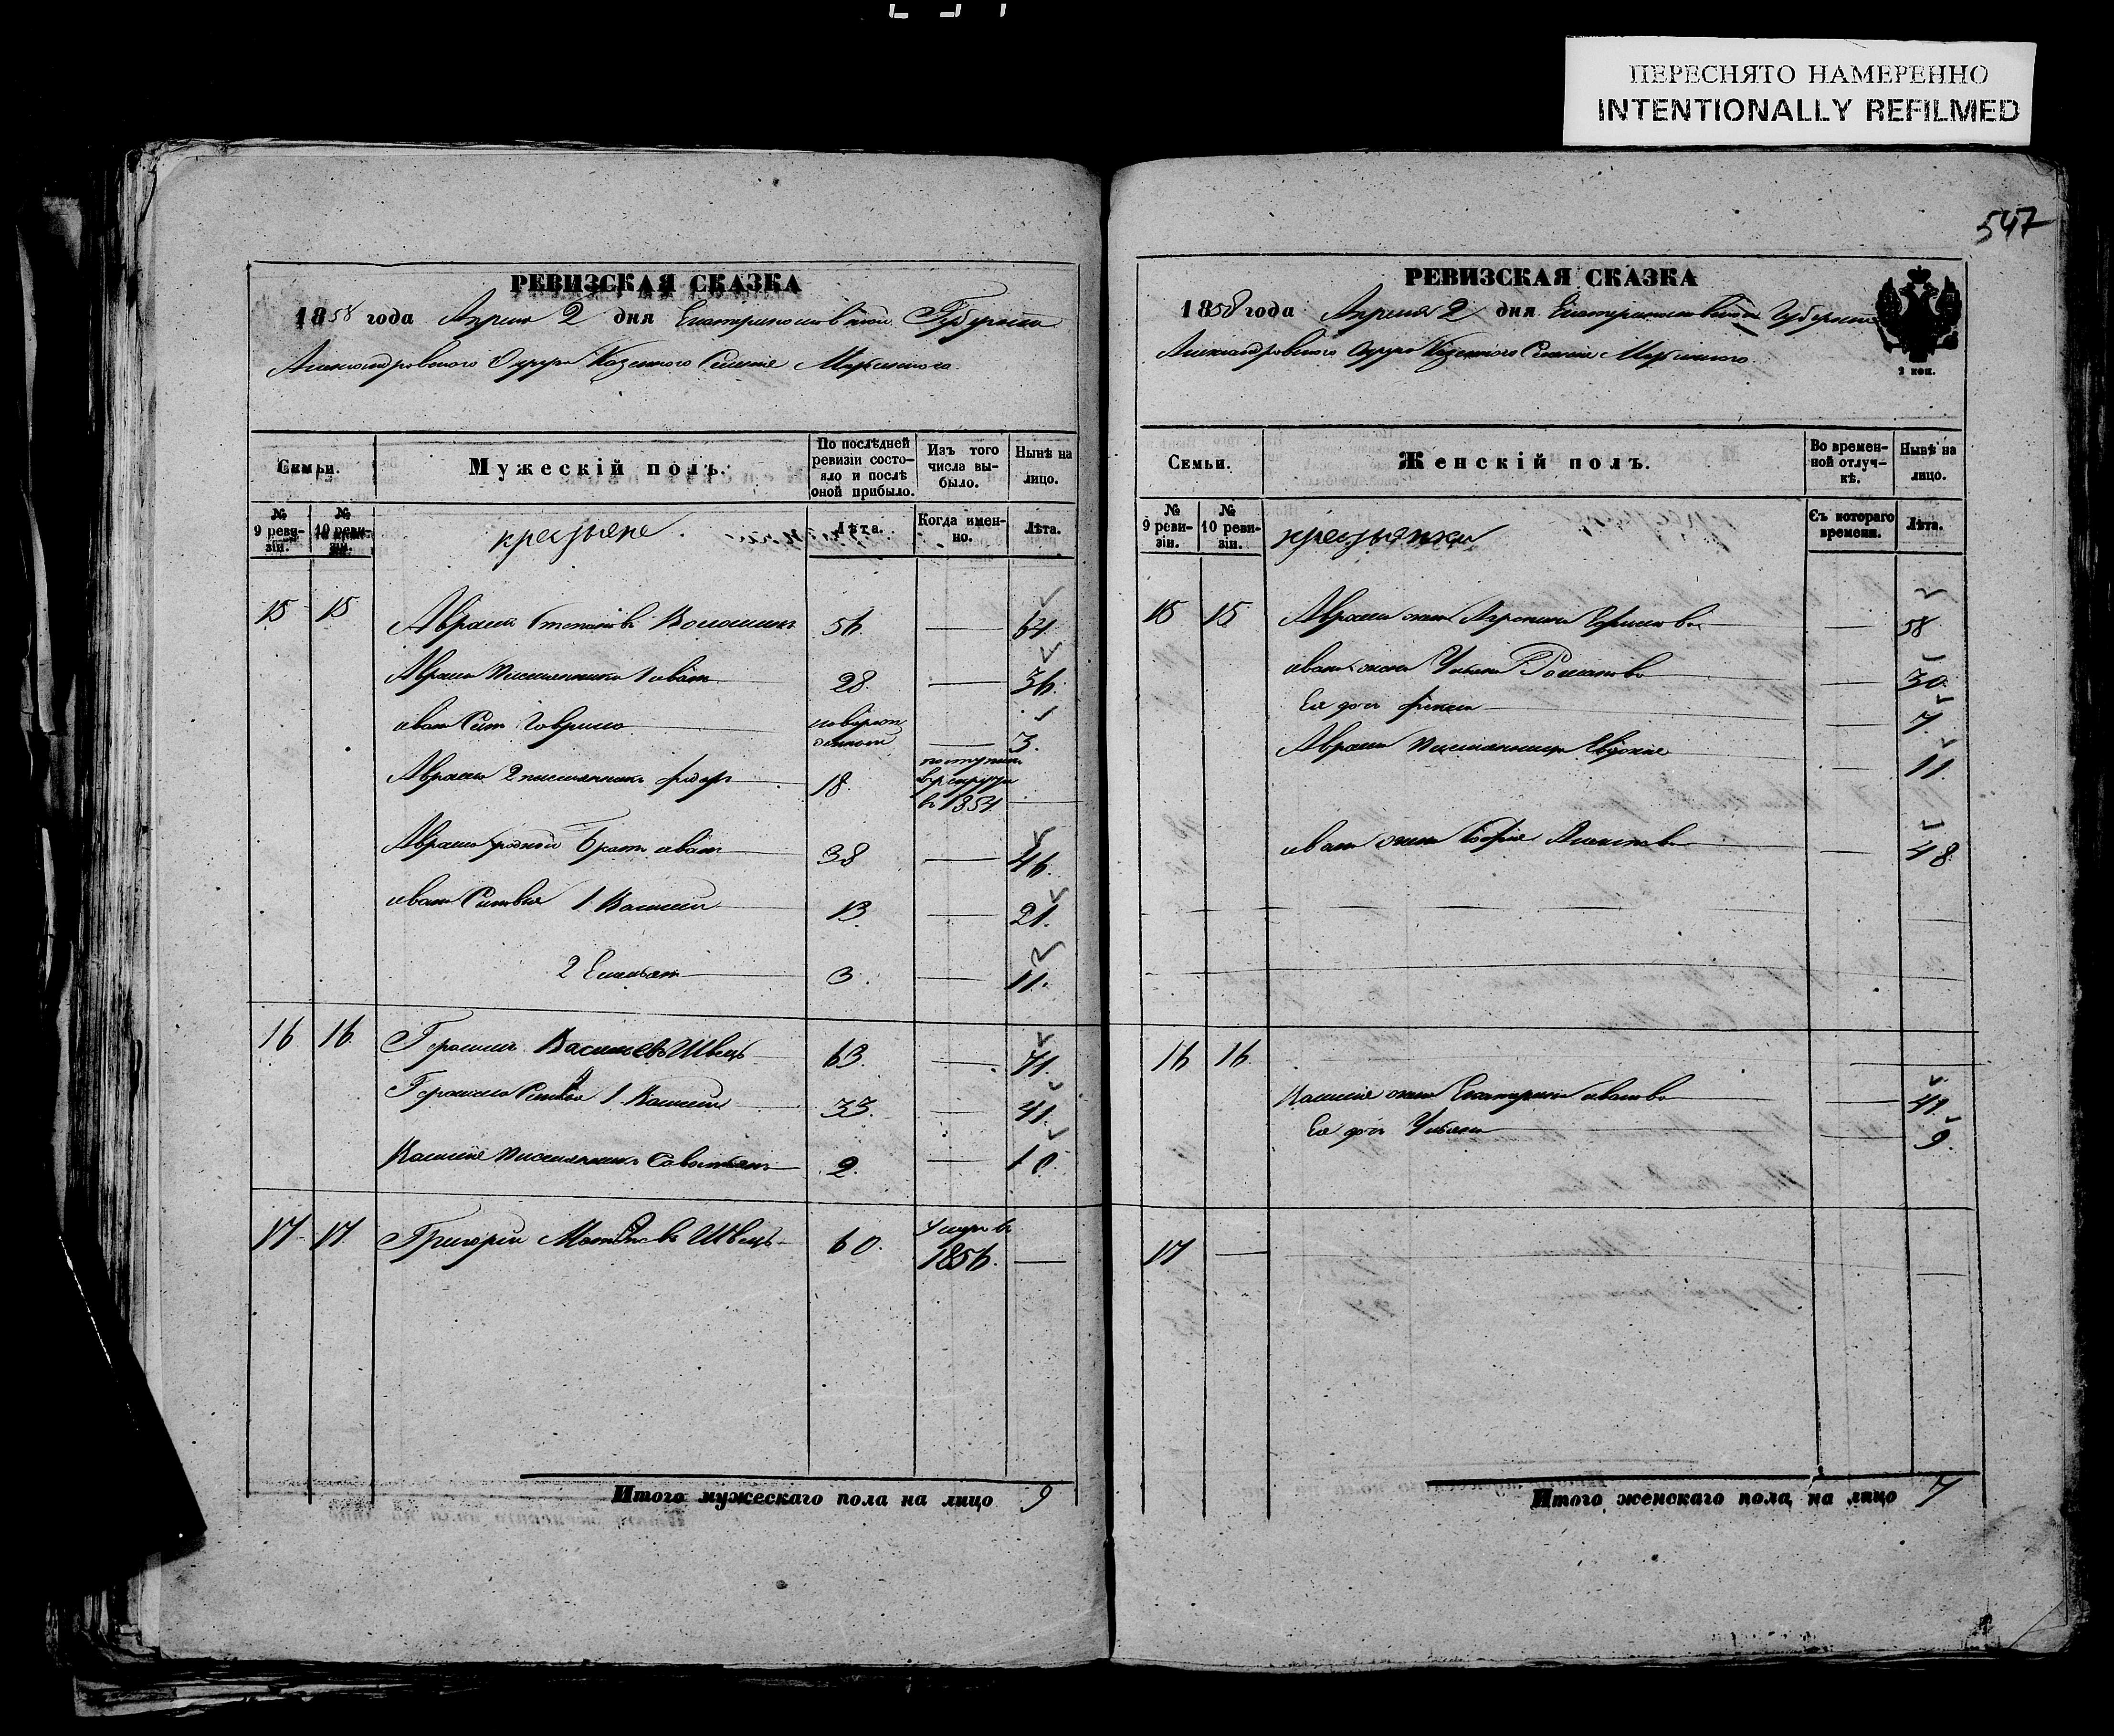 ПЕРЕСНЯТО НАМЕРЕННО
INTENTIONALLY REFILMED
547
РЕВИЗСКАЯ СКАЗКА
1858 года Апреля 2 дня Екатеринославской Губернии
Александровского Округа Казенного Селения
По послѣдней ревизіи состояло и послѣ оной прибыло.
Изъ того числа выбыло.
Нынѣ на лицо.
Семьи.
Мужескій полъ.
№ 9 ревизіи.
№ 10 ревизіи.
крестьяне
Лѣта.
Когда именно.
Лѣта.
15 15 Авраам Степанов Волошин 56. — 64.
Авраама Иван 28. — 36.
Ивана Сын Гаврило новорожденный — 3.
Авраама 2 Федор 18. поступил в рекруты в 1854 —
Авраама родной Брат Иван 38 — 46.
Ивана Сыновья 1 Василий 13 — 21.
2 Емельян 3. — 11.
16 16. Герасим Васильев Швець 63. — 71.
Герасима Сыновья 1 Василий 33. — 41.
Василия 2. — 10.
17 17 Григорий Швець 60. умер в 1856. —
Итого мужескаго пола на лицо 9
РЕВИЗСКАЯ СКАЗКА
1858 года Апреля 2 дня Екатеринославской Губернии
Александровского Округа Казенного Селения
2 коп.
Семьи.
Женскій полъ.
Во временной отлучкѣ.
Нынѣ на лицо.
№ 9 ревизіи.
№ 10 ревизіи.
крестьянки
Съ котораго времени.
Лѣта.
15 15 Авраама жена — 58
Ивана жена Ульяна Романова — 30.
Ея дочь — 7.
Авраама Евдокия — 11.
Ивана жена София — 48
16 16. —
Василия жена Екатерина Иванова — 41.
Ея дочь Ульяна — 9.
17 — —
Итого женскаго пола на лицо 7